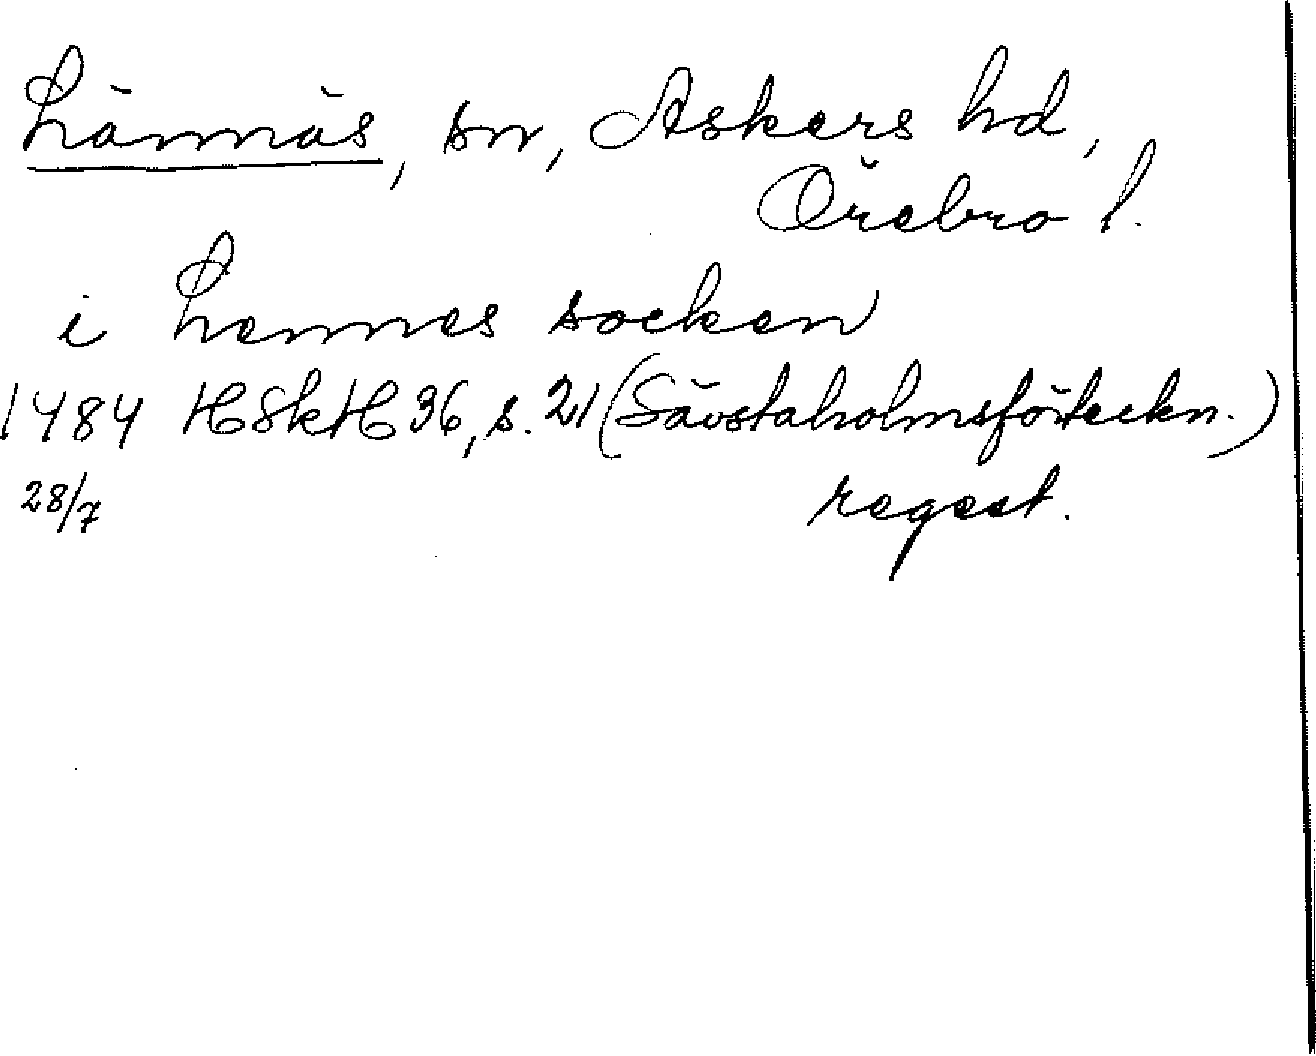 Lännäs, sn, Askers hd,
Örebro l.
i Lennes socken
1484 HSkH 36, s. 21 (Sävstaholmsförteckn.)
28/7 regest.